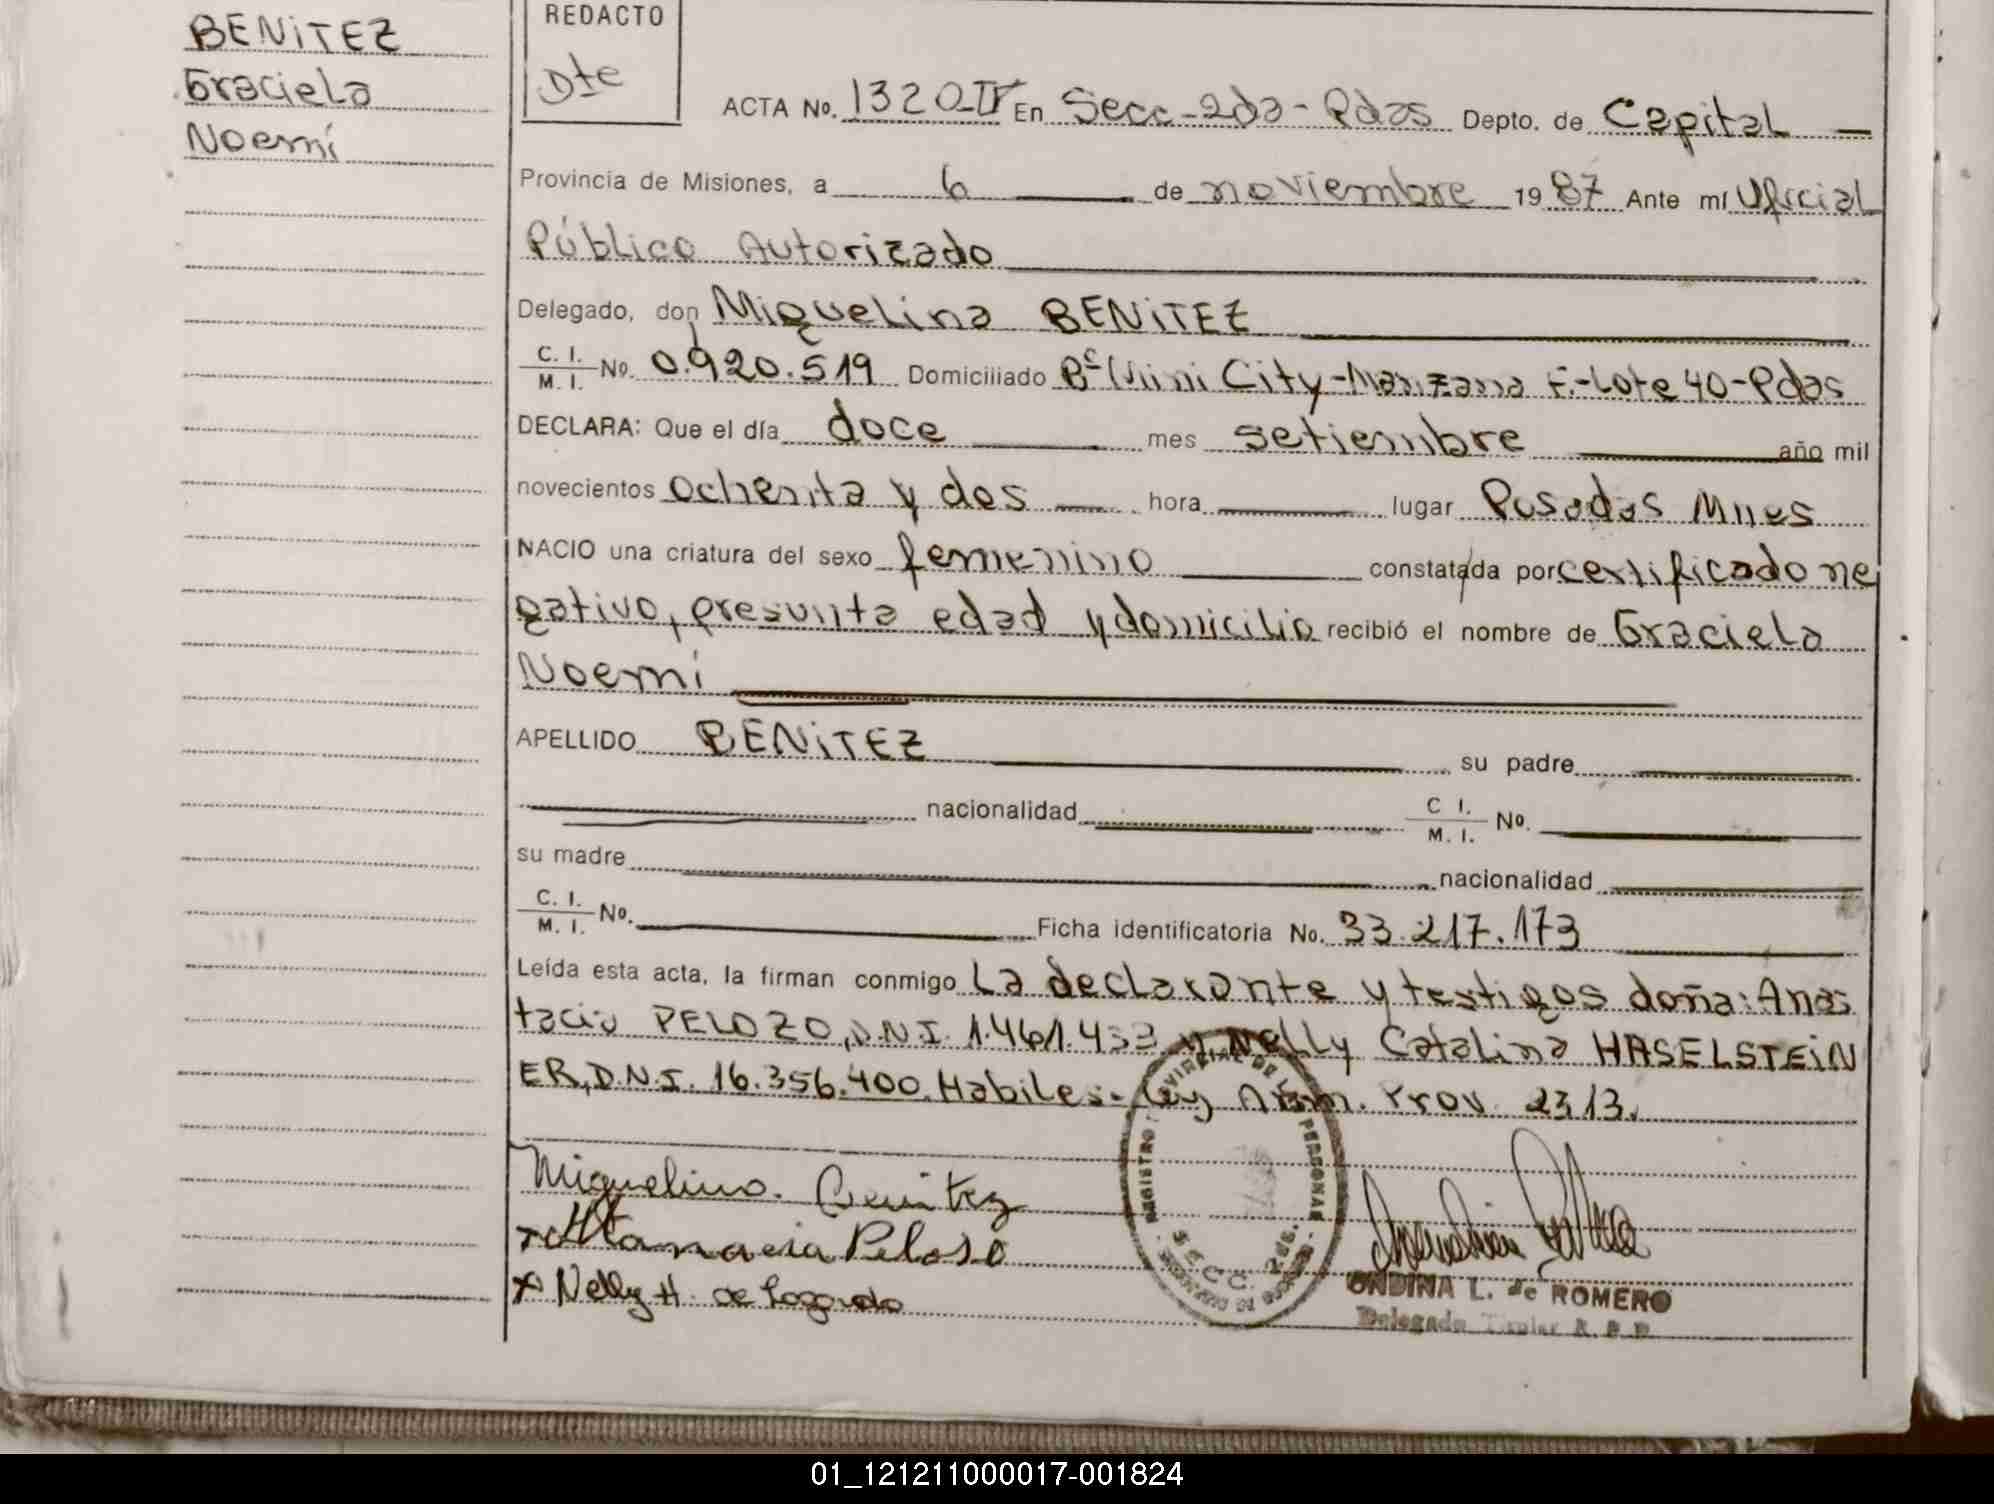 BENITEZ
Graciela
Noemí
REDACTO
Dte
ACTA No. 1320 IV En Secc-2da-Pdas Depto. de Capital
Provincia de Misiones, a 6 de noviembre 1987 Ante mí Oficial
Público Autorizado
Delegado, don Miguelina BENITEZ
C. I. M. I. No. 0.920.519 Domiciliado Bº Mini City-Manzana F.-Lote 40-Pdas
DECLARA: Que el día doce mes setiembre año mil
novecientos ochenta y dos hora lugar Posadas Mnes
NACIO una criatura del sexo femenino constatada por certificado ne
gativo, presunta edad y domicilio recibió el nombre de Graciela
Noemí
APELLIDO BENITEZ su padre
nacionalidad C I. M. I. No.
su madre nacionalidad
C. I. M. I. No. Ficha identificatoria No. 33.217.173
Leída esta acta, la firman conmigo La declarante y testigos doña: Anas
tacia PELOZO, D.N.I. 1.461.453 y Nelly Catalina HASELSTEIN
ER, D.N.I. 16.356.400. Habiles.- Ley Arm. Prov. 2313.
Miguelina. Benitez
Atanacia Peloso
x Nelly H. de
REGISTRO PROVINCIAL DE LAS PERSONAS
SECC. 2da.
ONDINA L. de ROMERO
Delegada Titular R. P. P.
01_121211000017-001824